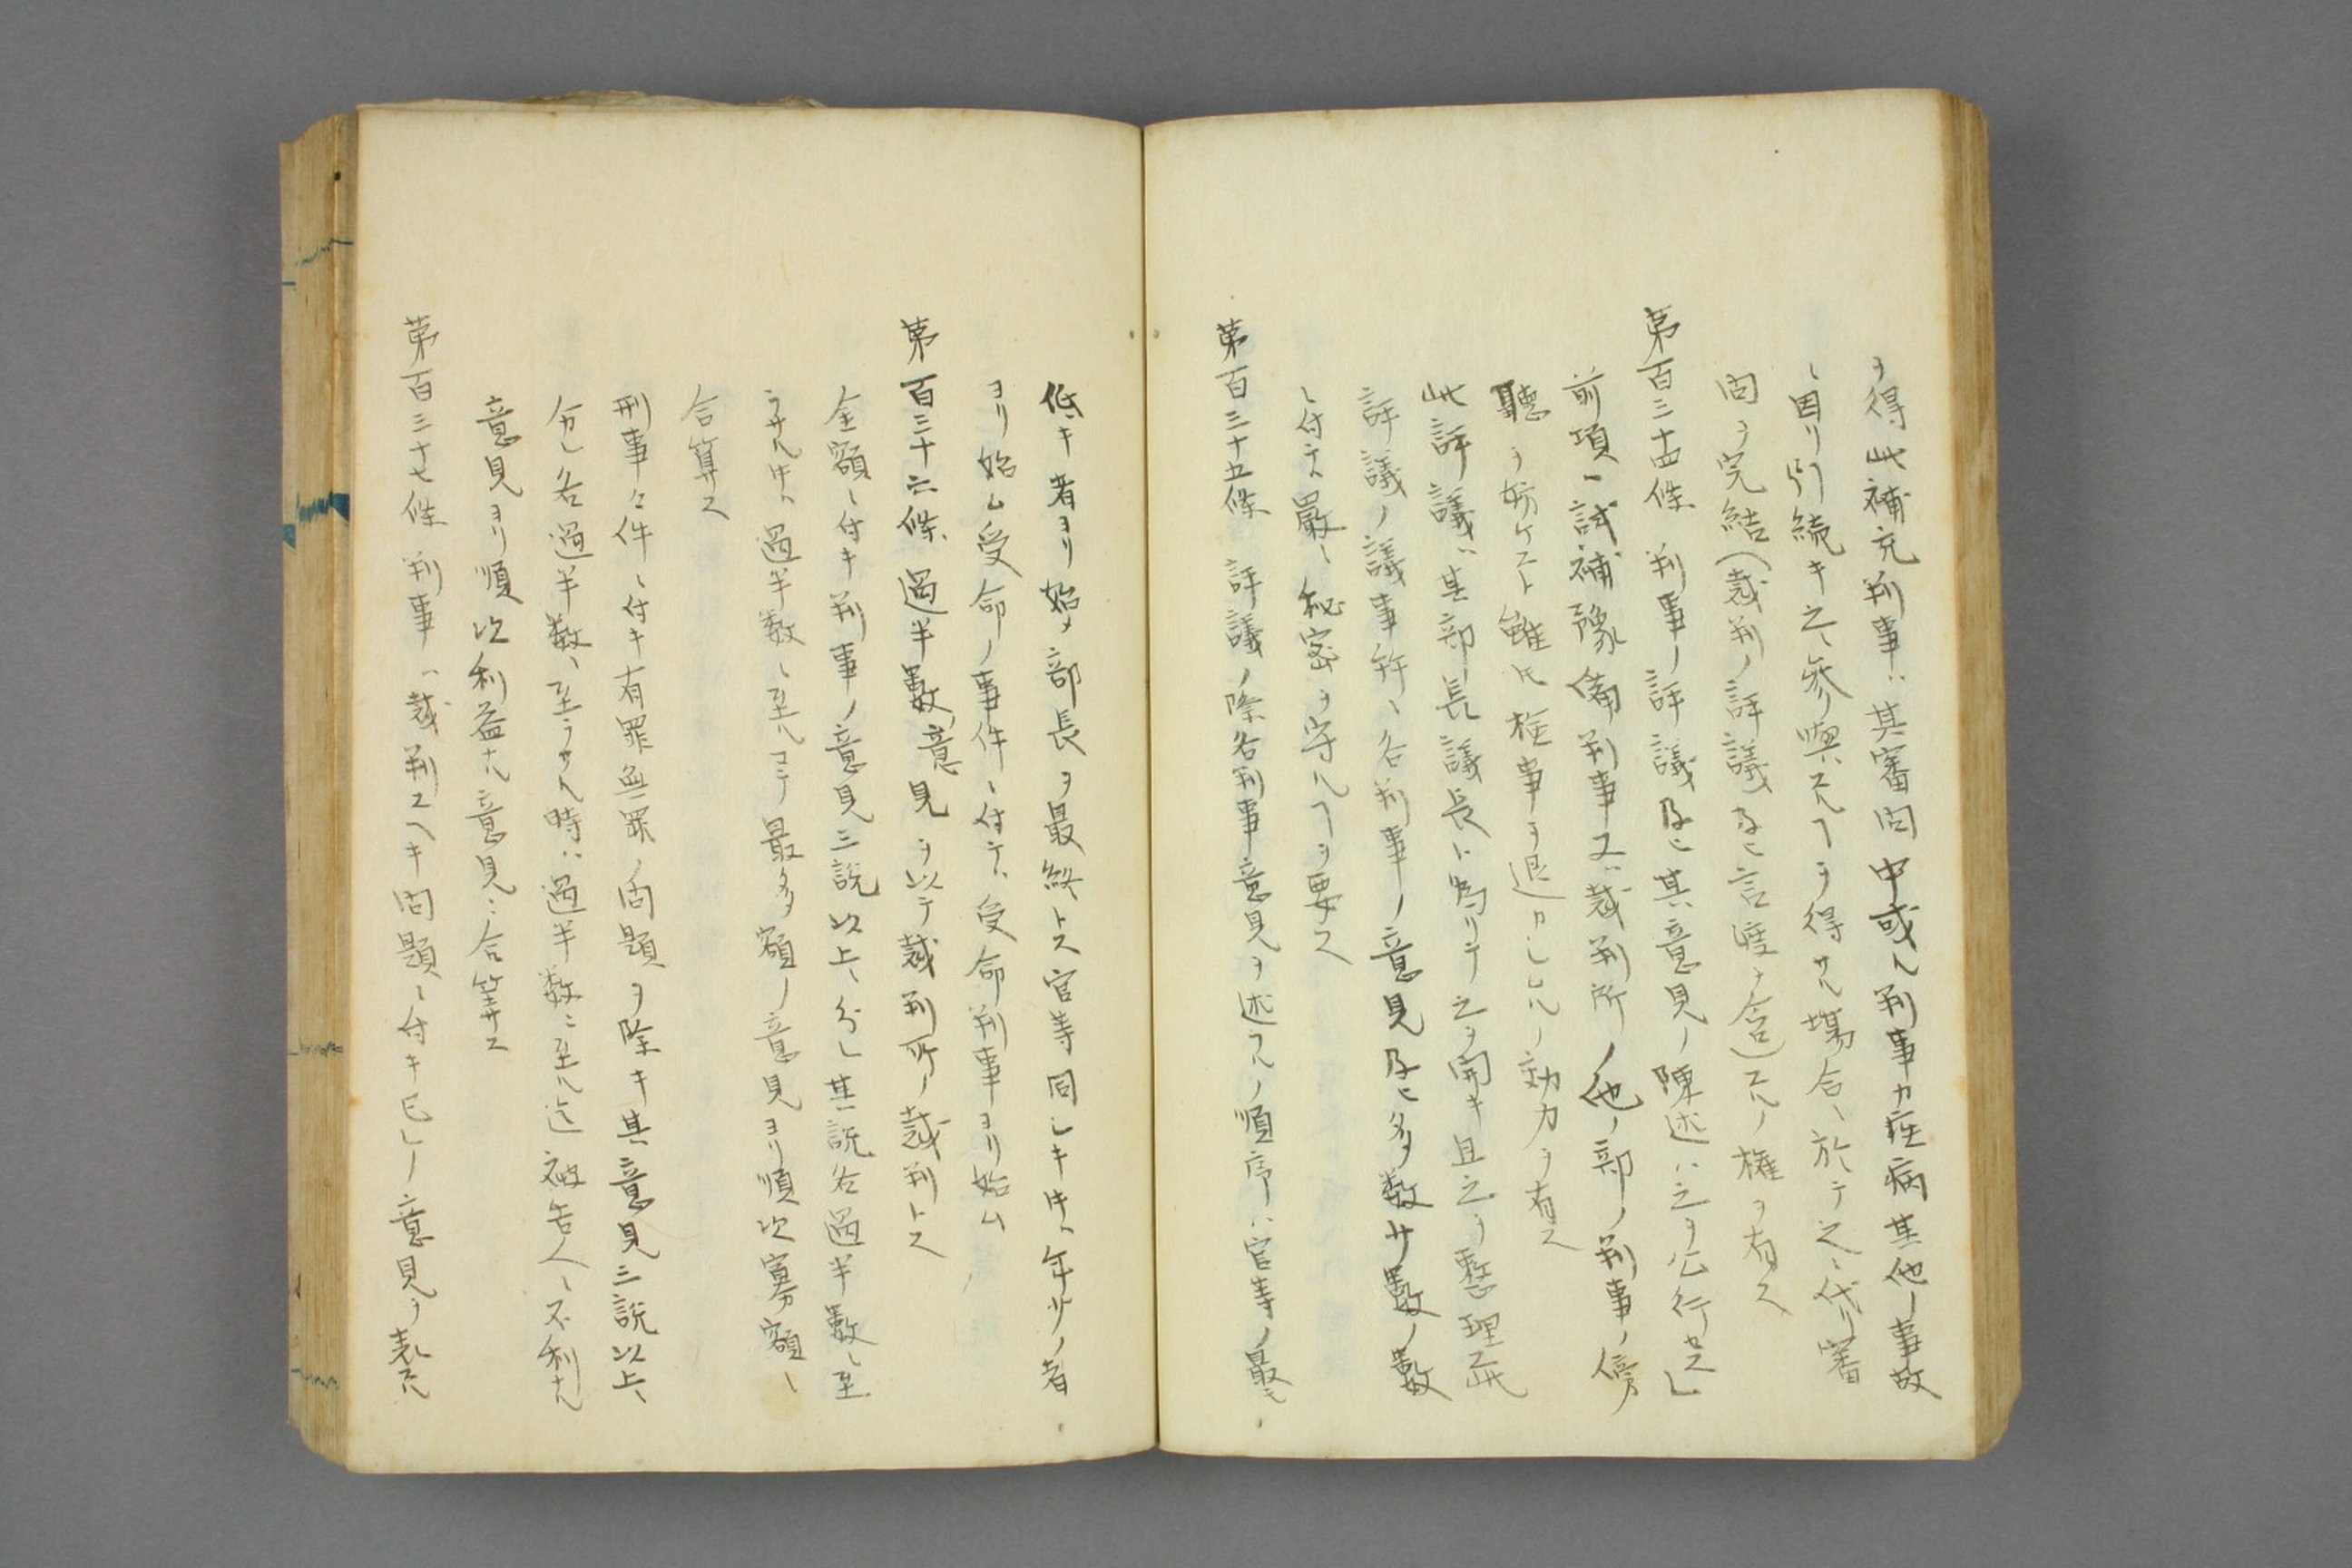 ヲ得此補充判事ハ其審問中或ル判事カ疾病其他ノ事故
ニ因リ引続キ之ニ參與スルヿヲ得サル塲合ニ於テ之ニ代リ審
問ヲ完結(裁判ノ評議及ヒ言渡ヲ含)スルノ権ヲ有ス
第百三十四條 判事ノ評議及ヒ其意見ノ陳述ハ之ヲ公行セス」
前項ハ試補豫備判事又ハ裁判所ノ他ノ部ノ判事ノ傍
聽ヲ妨ケスト雖𪜈検事ヲ退カシムルノ効力ヲ有ス
此評議ハ其部長議長ト為リテ之ヲ開キ且之ヲ整理ス此
評議ノ議事幷ニ各判事ノ意見及ヒ多数少數ノ數
ニ付テハ嚴ニ秘密ヲ守ルヿヲ要ス
第百三十五條 評議ノ際各判事意見ヲ述フルノ順序ハ官等ノ最モ
低キ者ヨリ始メ部長ヲ最終トス官等同シキ時ハ年少ノ者
ヨリ始ム受命ノ事件ニ付テハ受命判事ヨリ始ム
第百三十六條 過半數ノ意見ヲ以テ裁判所ノ裁判トス
金額ニ付キ判事ノ意見三説以上ニ分レ其説各過半數ニ至
ラサル時ハ過半数ニ至ルマテ最多額ノ意見ヨリ順次寡額ニ
合算ス
刑事々件ニ付キ有罪無罪ノ問題ヲ除キ其意見三説以上ニ
分レ各過半數ニ至ラサル時ハ過半数ニ至ル迄被告人ニ不利ナル
意見ヨリ順次利益ナル意見ニ合算ス
第百三十七條 判事ハ裁判スヘキ問題ニ付キ己レノ意見ヲ表スル